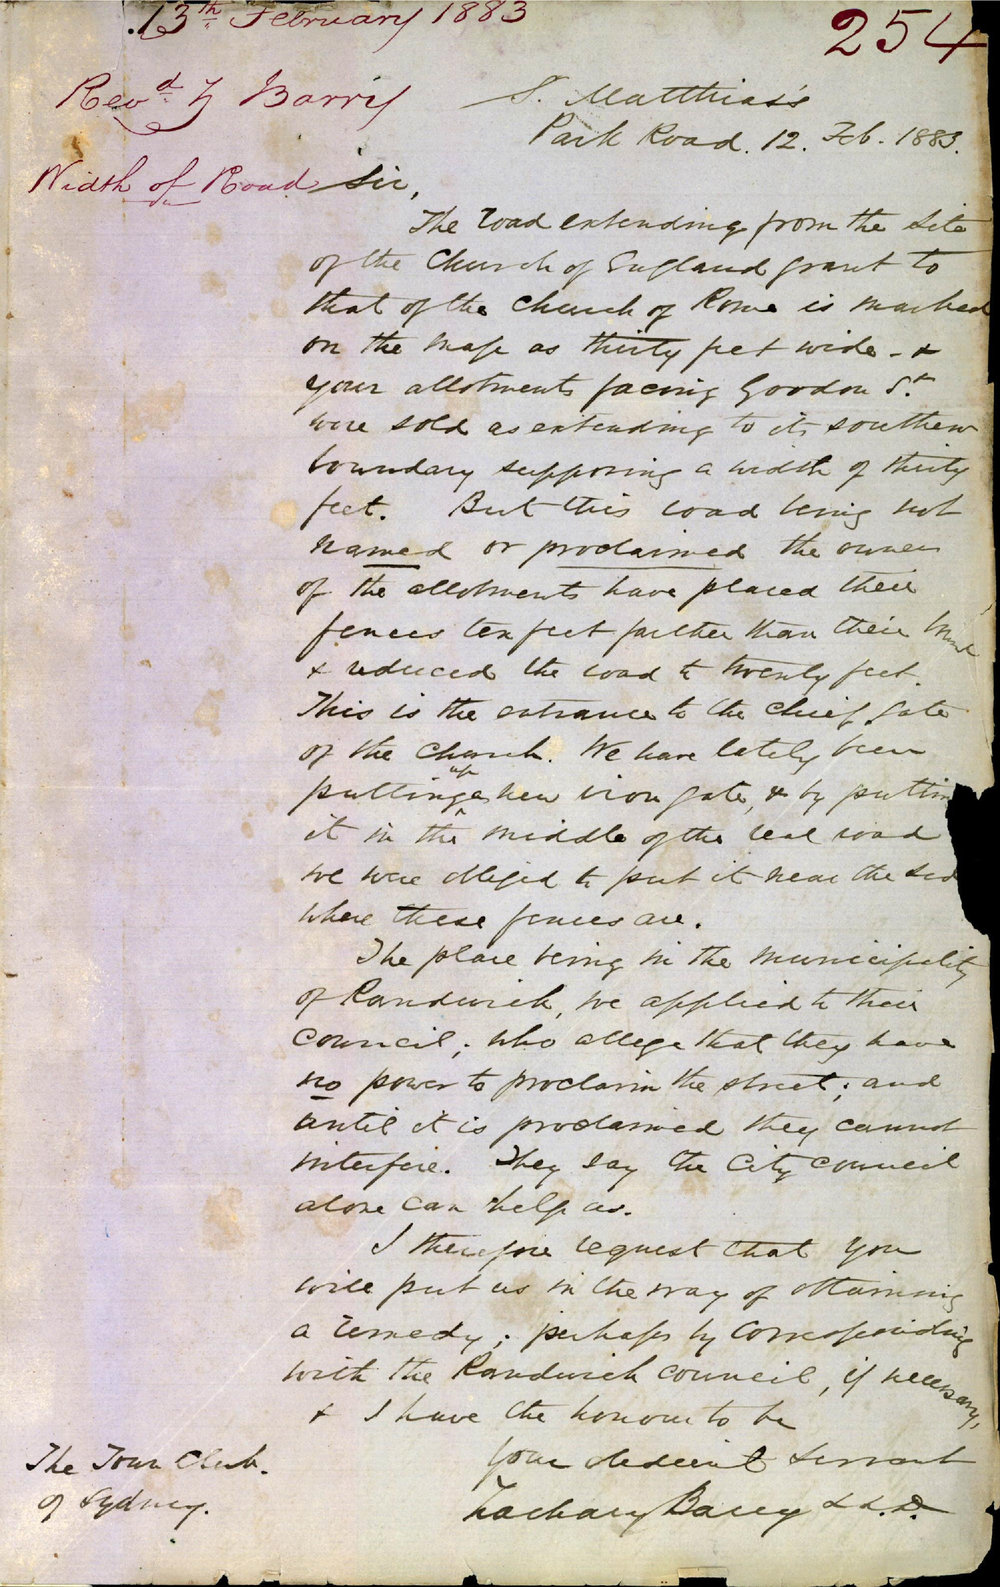 13th February 1883
254
Revd Z Barry
S. Matthias's
Park Road. 12. Feb. 1883.
Width of Road
Sir,
The road extending from the site
of the Church of England grant to
that of the Church of Rome is marked
on the map as thirty feet wide - &
your allotments facing Gordon St.
were sold as extending to its southern
boundary supposing a width of thirty
feet. But this road being not
named or proclaimed the owners
of the allotments have placed their
fences ten feet farther than their
& reduced the road to twenty feet.
This is the entrance to the chief gate
of the Church. We have lately been
putting up a new iron gate, & by putting
it in the middle of the real road
we were obliged to put it near the side
where these fences are.
The place being in the Municipality
of Randwick, we applied to their
Council; who allege that they have
no power to proclaim the street; and
until it is proclaimed they cannot
interfere. They say the City Council
alone can help us.
I therefore request that you
will put us in the way of obtaining
a remedy; perhaps by corresponding
with the Randwick Council, if necessary,
& I have the honour to be
your obedient servant
Zachary Barry LL.D.
The Town Clerk.
of Sydney.